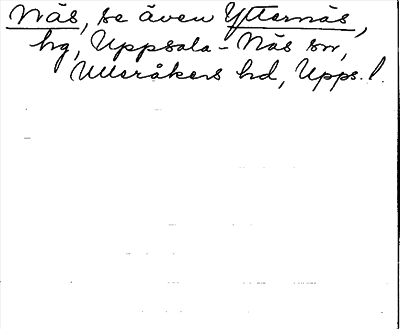 Näs, se även Ytternäs,
hg, Uppsala-Näs sn,
Ulleråkers hd, Upps. l.